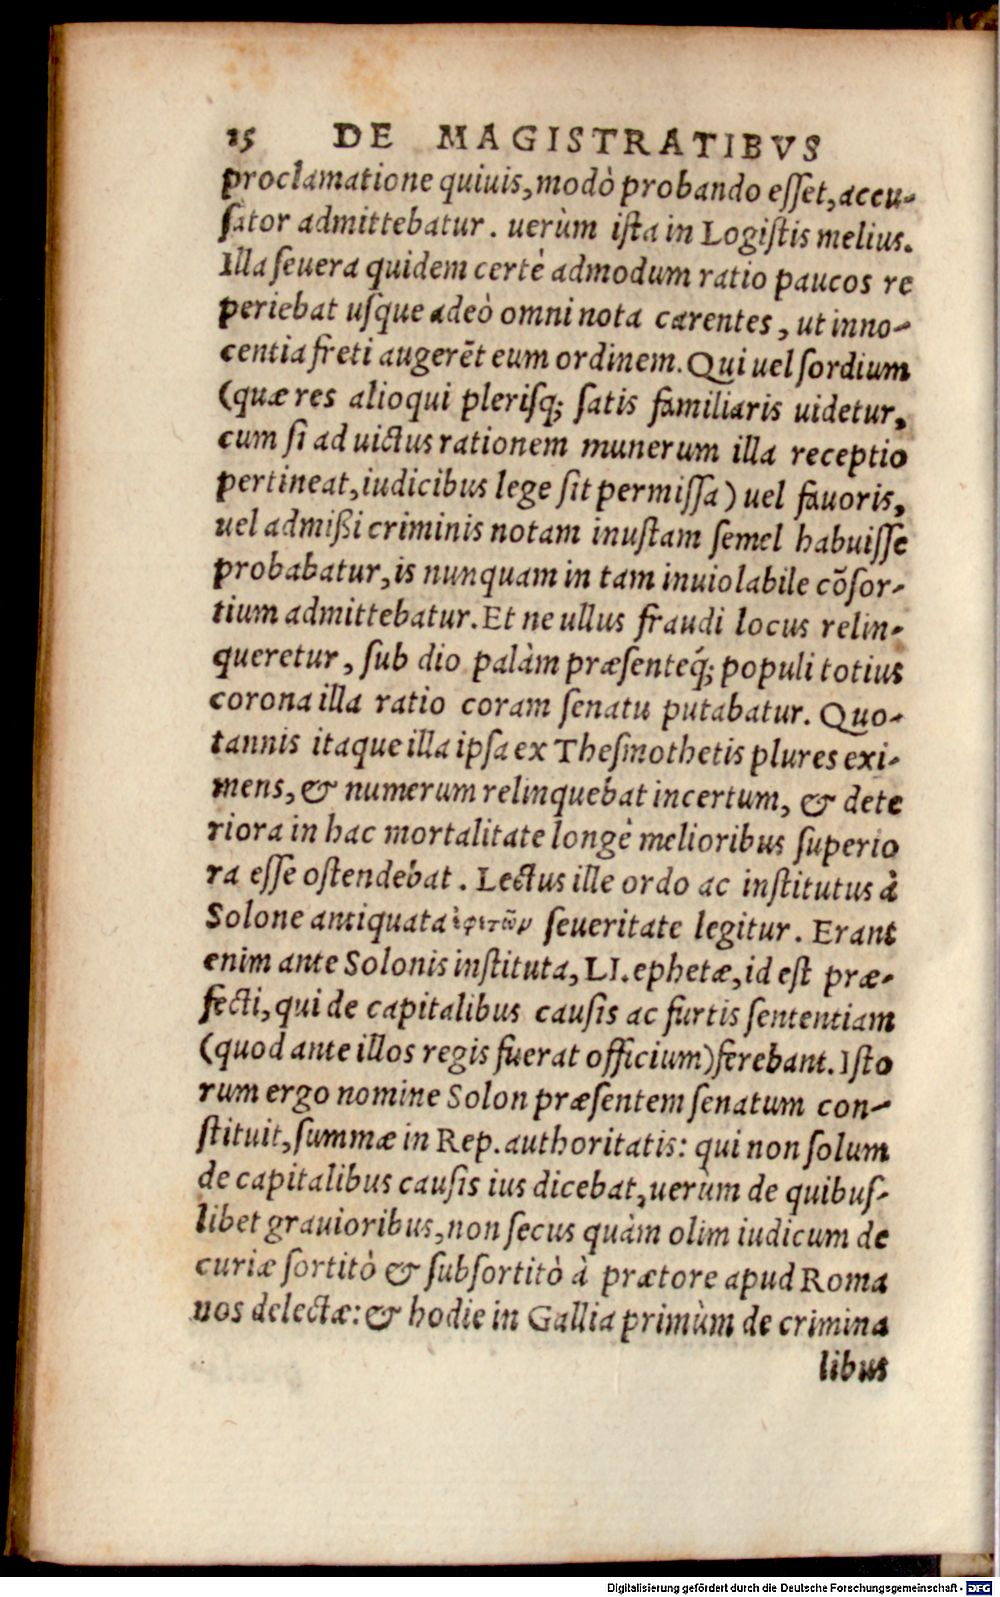 15 DE MAGISTRATIBVS
proclamatione quiuis, modò probando esset, accu-
sator admittebatur. uerùm ista in Logistis melius.
Illa seuera quidem certè admodum ratio paucos re
periebat usque adeò omni nota carentes, ut inno-
centia freti augerēt eum ordinem. Qui uel sordium
(quæ res alioqui plerisq; satis familiaris uidetur,
cum si ad uictus rationem munerum illa receptio
pertineat, iudicibus lege sit permissa) uel fauoris,
uel admißi criminis notam inustam semel habuisse
probabatur, is nunquam in tam inuiolabile cōsor-
tium admittebatur. Et ne ullus fraudi locus relin-
queretur, sub dio palàm præsenteq́; populi totius
corona illa ratio coram senatu putabatur. Quo-
tannis itaque illa ipsa ex Thesmothetis plures exi-
mens, & numerum relinquebat incertum, & dete
riora in hac mortalitate longè melioribus superio
ra esse ostendebat. Lectus ille ordo ac institutus à
Solone antiquata ἐφετῶν seueritate legitur. Erant
enim ante Solonis instituta, LI. ephetæ, id est præ-
fecti, qui de capitalibus causis ac furtis sententiam
(quod ante illos regis fuerat officium) ferebant. Isto
rum ergo nomine Solon præsentem senatum con-
stituit, summæ in Rep. authoritatis: qui non solum
de capitalibus causis ius dicebat, uerùm de quibus-
libet grauioribus, non secus quàm olim iudicum de
curiæ sortitò & subsortitò à prætore apud Roma
nos delectæ: & hodie in Gallia primùm de crimina
libus
Digitalisierung gefördert durch die Deutsche Forschungsgemeinschaft - DFG